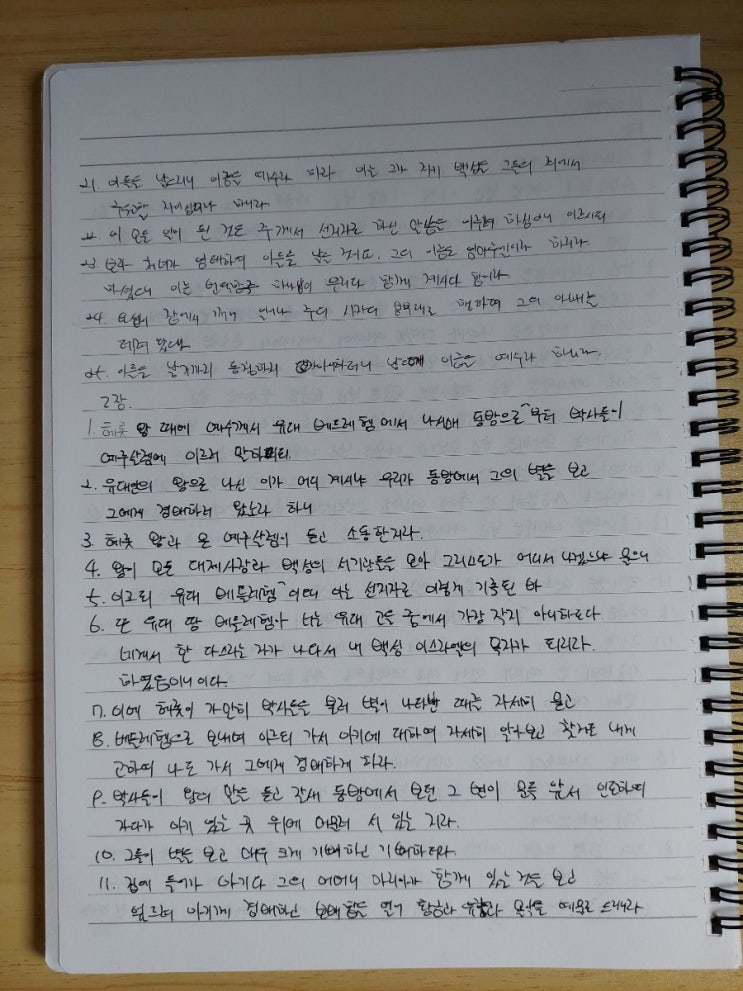 21. 아들을 낳으리니 이름을 예수라 하라 이는 그가 자기 백성을 그들의 죄에서
구원할 자이심이라 하니라
22. 이 모든 일이 된 것은 주께서 선지자로 하신 말씀을 이루려 하심이니 이르시되
23. 보라 처녀가 잉태하여 아들을 낳을 것이요. 그의 이름은 임마누엘이라 하리라
하셨으니 이는 번역한즉 하나님이 우리와 함께 계시다 함이라
24. 요셉이 잠에서 깨어 일어나 주의 사자의 분부대로 행하여 그의 아내를
데려 왔으나
25. 아들을 낳기까지 동침하지 아니하더니 낳으매 이름을 예수라 하니라.
2장.
1. 헤롯 왕 때에 예수께서 유대 베들레헴에서 나시매 동방으로^부터 박사들이
예루살렘에 이르러 말하되.
2. 유대인의 왕으로 나신 이가 어디 계시냐 우리가 동방에서 그의 별을 보고
그에게 경배하러 왔노라 하니
3. 헤롯 왕과 온 예루살렘이 듣고 소동한지라.
4. 왕이 모든 대제사장과 백성의 서기관들을 모아 그리스도가 어디서 나겠느냐 물으니
5. 이르되 유대 베들레헴^이니 이는 선지자로 이렇게 기록된 바
6. 또 유대 땅 베들레헴아 너는 유대 고을 중에서 가장 작지 아니하도다
네게서 한 다스리는 자가 나와서 내 백성 이스라엘의 목자가 되리라.
하였음이니이다.
7. 이에 헤롯이 가만히 박사들을 불러 별이 나타난 때를 자세히 묻고
8. 베들레헴으로 보내며 이르되 가서 아기에 대하여 자세히 알아보고 찾거든 내게
고하여 나도 가서 그에게 경배하게 하라.
9. 박사들이 왕의 말을 듣고 갈새 동방에서 보던 그 별이 문득 앞서 인도하여
가다가 아기 있는 곳 위에 머물러 서 있는 지라.
10. 그들이 별을 보고 매우 크게 기뻐하고 기뻐하더라.
11. 집에 들어가 아기와 그의 어머니 마리아가 함께 있는 것을 보고
엎드려 아기께 경배하고 보배합을 열어 황금과 유향과 몰약을 예물로 드리니라